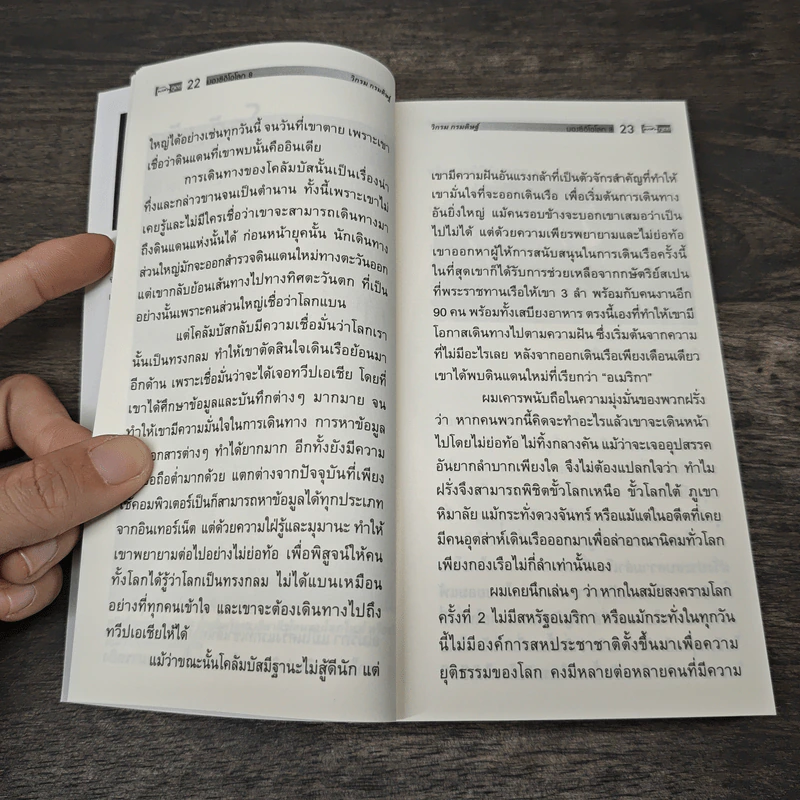 22 มองซีอีโอโลก 8 วิกรม กรมดิษฐ์
ใหญ่ได้อย่างเช่นทุกวันนี้ จนวันที่เขาตาย เพราะเขา
เชื่อว่าดินแดนที่เขาพบนั้นคืออินเดีย
การเดินทางของโคลัมบัสนั้นเป็นเรื่องน่า
ทึ่งและกล่าวขานจนเป็นตำนาน ทั้งนี้เพราะเขาไม่
เคยรู้และไม่มีใครเชื่อว่าเขาจะสามารถเดินทางมา
ถึงดินแดนแห่งนั้นได้ ก่อนหน้ายุคนั้น นักเดินทาง
ส่วนใหญ่มักจะออกสำรวจดินแดนใหม่ทางตะวันออก
แต่เขากลับย้อนเส้นทางไปทางทิศตะวันตก ที่เป็น
อย่างนั้นเพราะคนส่วนใหญ่เชื่อว่าโลกแบน
แต่โคลัมบัสกลับมีความเชื่อมั่นว่าโลกเรา
นั้นเป็นทรงกลม ทำให้เขาตัดสินใจเดินเรือย้อนมา
อีกด้าน เพราะเชื่อมั่นว่าจะได้เจอทวีปเอเชีย โดยที่
เขาได้ศึกษาข้อมูลและบันทึกต่างๆ มากมาย จน
ทำให้เขามีความมั่นใจในการเดินทาง การหาข้อมูล
เอกสารต่างๆ ทำได้ยากมาก อีกทั้งยังมีความ
ถือต่ำมากด้วย แตกต่างจากปัจจุบันที่เพียง
ใช้คอมพิวเตอร์เป็นก็สามารถหาข้อมูลได้ทุกประเภท
จากอินเทอร์เน็ต แต่ด้วยความใฝ่รู้และมุมานะ ทำให้
เขาพยายามต่อไปอย่างไม่ย่อท้อ เพื่อพิสูจน์ให้คน
ทั้งโลกได้รู้ว่าโลกเป็นทรงกลม ไม่ได้แบนเหมือน
อย่างที่ทุกคนเข้าใจ และเขาจะต้องเดินทางไปถึง
ทวีปเอเชียให้ได้
แม้ว่าขณะนั้นโคลัมบัสมีฐานะไม่สู้ดีนัก แต่
วิกรม กรมดิษฐ์ มองซีอีโอโลก 8 23
เขามีความฝันอันแรงกล้าที่เป็นตัวจักรสำคัญที่ทำให้
เขามั่นใจที่จะออกเดินเรือ เพื่อเริ่มต้นการเดินทาง
อันยิ่งใหญ่ แม้คนรอบข้างจะบอกเขาเสมอว่าเป็น
ไปไม่ได้ แต่ด้วยความเพียรพยายามและไม่ย่อท้อ
เขาออกหาผู้ให้การสนับสนุนในการเดินเรือครั้งนี้
ในที่สุดเขาก็ได้รับการช่วยเหลือจากกษัตริย์สเปน
ที่พระราชทานเรือให้เขา 3 ลำ พร้อมกับคนงานอีก
90 คน พร้อมทั้งเสบียงอาหาร ตรงนี้เองที่ทำให้เขามี
โอกาสเดินทางไปตามความฝัน ซึ่งเริ่มต้นจากความ
ที่ไม่มีอะไรเลย หลังจากออกเดินเรือเพียงเดือนเดียว
เขาได้พบดินแดนใหม่ที่เรียกว่า “อเมริกา”
ผมเคารพนับถือในความมุ่งมั่นของพวกฝรั่ง
ว่า หากคนพวกนี้คิดจะทำอะไรแล้วเขาจะเดินหน้า
ไปโดยไม่ย่อท้อ ไม่ทิ้งกลางคัน แม้ว่าจะเจออุปสรรค
อันยากลำบากเพียงใด จึงไม่ต้องแปลกใจว่า ทำไม
ฝรั่งจึงสามารถพิชิตขั้วโลกเหนือ ขั้วโลกใต้ ภูเขา
หิมาลัย แม้กระทั่งดวงจันทร์ หรือแม้แต่ในอดีตที่เคย
มีคนอุตส่าห์เดินเรือออกมาเพื่อล่าอาณานิคมทั่วโลก
เพียงกองเรือไม่กี่ลำเท่านั้นเอง
ผมเคยนึกเล่นๆ ว่า หากในสมัยสงครามโลก
ครั้งที่ 2 ไม่มีสหรัฐอเมริกา หรือแม้กระทั่งในทุกวัน
นี้ไม่มีองค์การสหประชาชาติตั้งขึ้นมาเพื่อความ
ยุติธรรมของโลก คงมีหลายต่อหลายคนที่มีความ